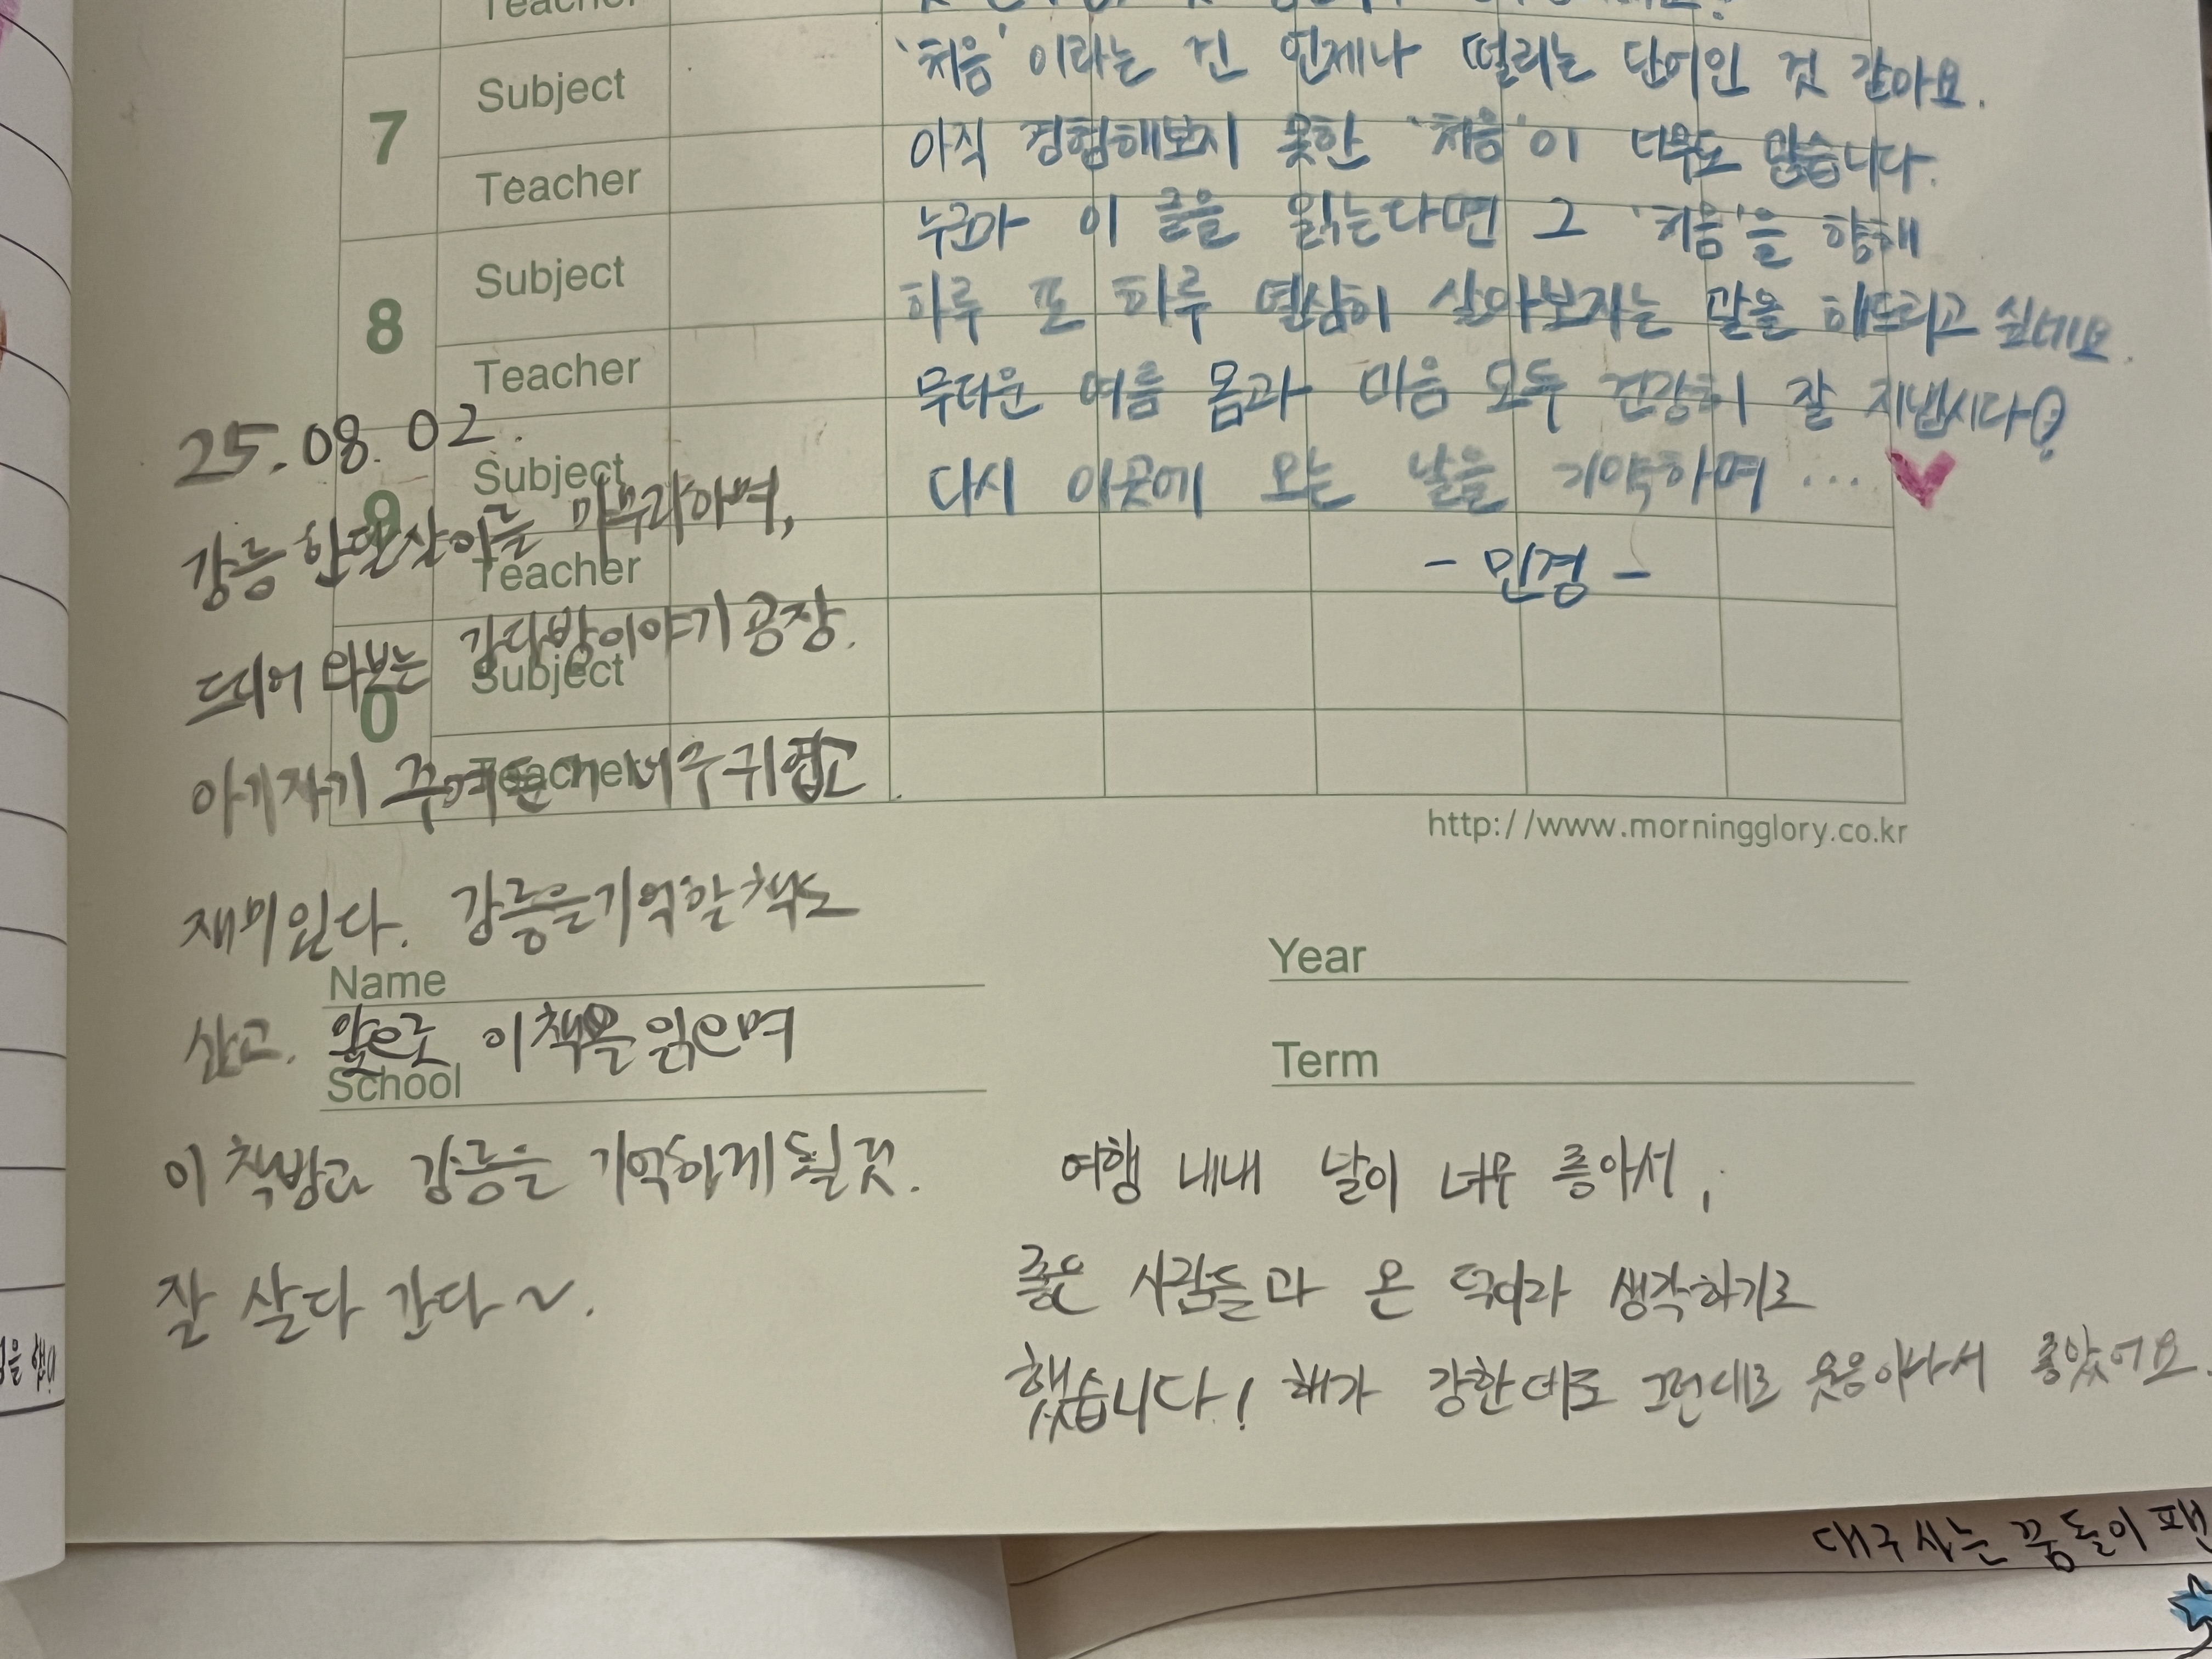 Teacher
7
Subject
Teacher
8
Subject
Teacher
9
Subject
Teacher
0
Subject
Teacher
'처음'이라는 건 언제나 떨리는 단어인 것 같아요.
아직 경험해보지 못한 '처음'이 너무도 많습니다.
누군가 이 글을 읽는다면 그 '처음'을 향해
하루 또 하루 열심히 살아보자는 말을 해드리고 싶네요.
무더운 여름 몸과 마음 모두 건강히 잘 지냅시다!
다시 이곳에 오는 날을 기약하며 ... ♥
- 민경 -
25.08.02.
강릉 한달살이를 마무리하며,
뜨어 와보는 강다방이야기공장.
아기자기 꾸며둔게 너무 귀엽고
재미있다. 강릉을 기억할 책도
산고. 앞으로 이 책을 읽으며
이 책방과 강릉을 기억하게 될 것.
잘 살다 간다~.
http://www.morningglory.co.kr
Name
School
Year
Term
여행 내내 날이 너무 좋아서,
좋은 사람들과 온 덕이라 생각하기로
했습니다! 해가 강한데도 그런대로 웃음이나서 좋았어요.
대구사는 꿈돌이 팬